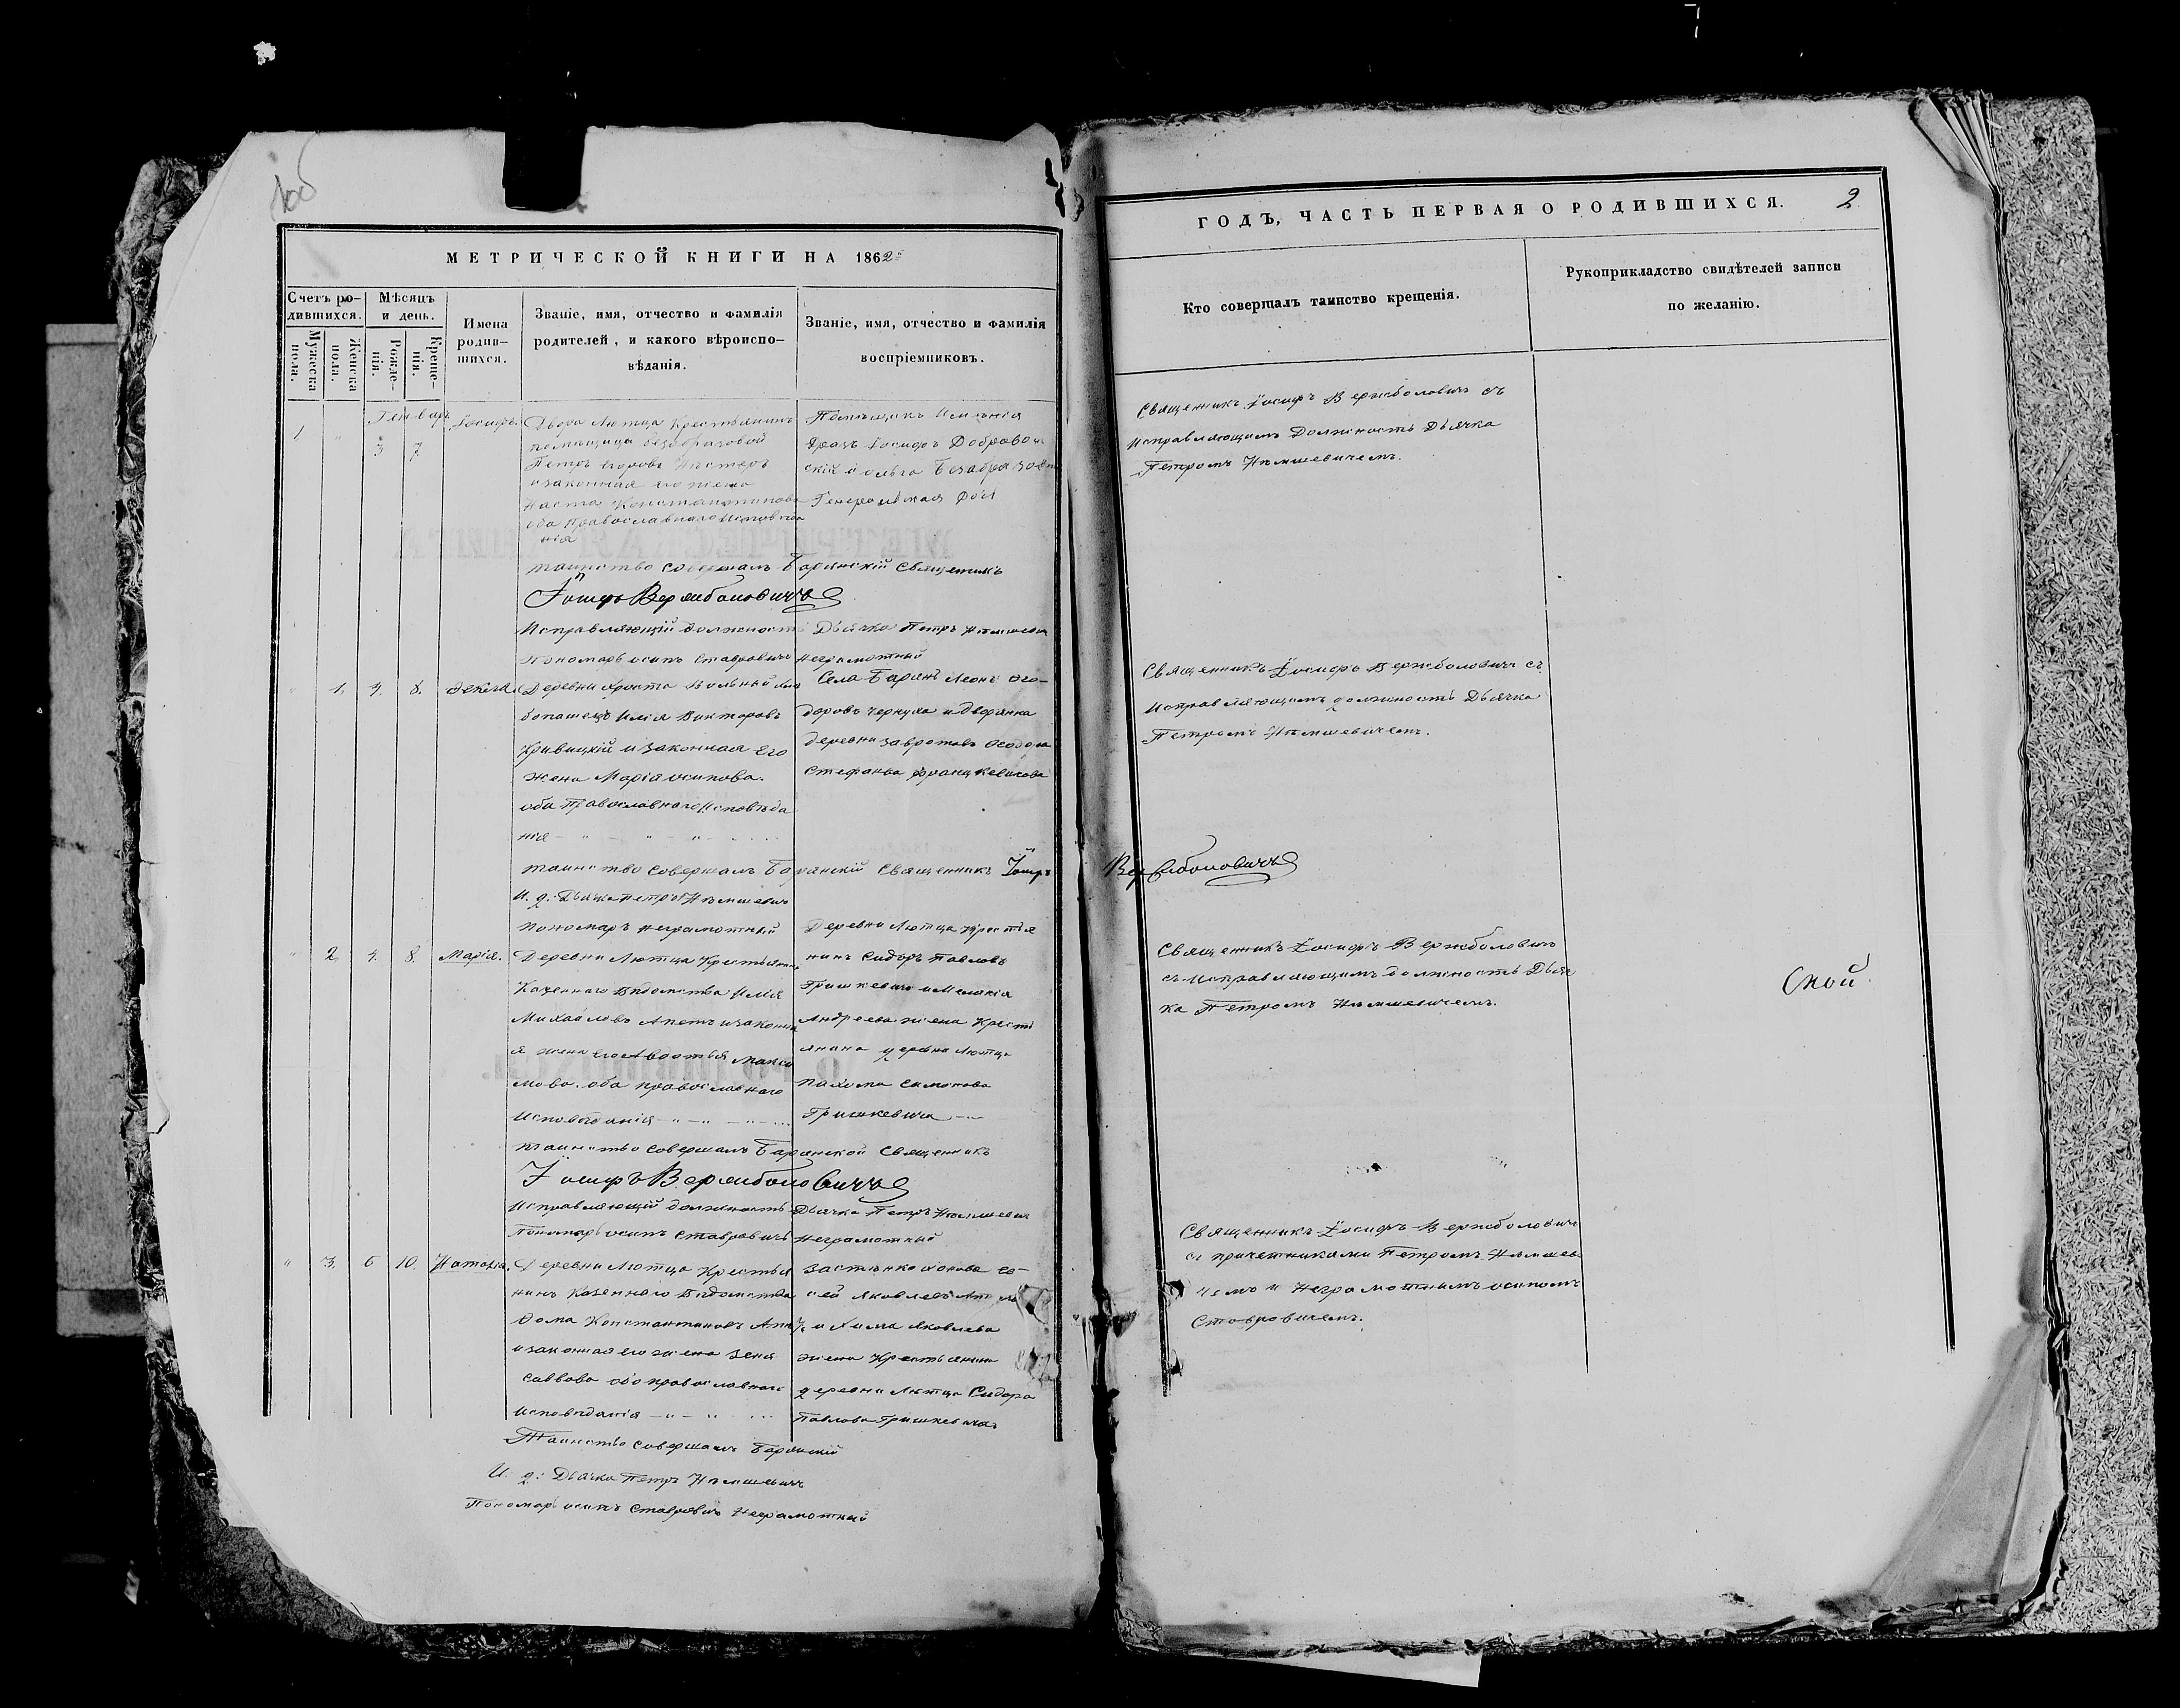 МЕТРИЧЕСКОЙ КНИГИ НА 1862
Счетъ ро-
дившихся.
Мужеска
пола.
Женска
пола.
Мѣсяцъ
и день.
Рожде-
нія.
Креще-
нія.
Имена
родив-
шихся.
Званіе, имя, отчество и фамилія
родителей, и какого вѣроиспо-
вѣданія.
Званіе, имя, отчество и фамилія
воспріемниковъ.
1 " 3 7 Іосифъ.
Двора Лютца Крестьянинъ
помѣщицы
Петръ Егоровъ
и законная его жена
Наста Константинова
оба Православнаго Исповѣда
нія
Помѣщикъ Имѣнія
Іосифъ Добровол
скій и Ольга
Генеральская
Таинство совершалъ Баранскій Священникъ
Іосифъ Вержболовичъ
Исправляющій должность Дьячка Петръ Нѣмшевич
Пономарь осипъ Ставровичъ неграмотный
" 1. 4. 8. Ѳекла.
Деревни Хроста Вольный
Илія Викторовъ
Кривицкій и законная Его
жена Марія осипова.
оба Православнаго Исповѣда
нія
Села Баранъ Леонъ Ѳео-
доровъ Чернуха и Дворянка
деревни
Стефанова Францкевичова
Таинство совершалъ Баранскій Священникъ Іосифъ Вержболовичъ
И. д. Дьячка Петръ Нѣмшевич
Пономарь неграмотный
" 2. 4. 8. Марія.
Деревни Лютца Крестьянинъ
Казеннаго Вѣдомства Илія
Михайловъ Апетъ и законна
я жена его Авдотья Макси
мова. оба православнаго
Исповѣданія
Деревни Лютца Крестья
нинъ Сидоръ Павловъ
Гришкевичъ и Меланія
Андреева жена Крестъ
янина деревни Лютца
Пахома Симонова
Гришкевича
Таинство совершалъ Баранской Священникъ
Іосифъ Вержболовичъ
Исправляющій должность Дьячка Петръ Нѣмшевич
Пономарь осипъ Ставровичъ Неграмотный
" 3. 6 10. Наталія.
Деревни Лютца Крестья
нинъ Казеннаго Вѣдомства
Ѳома Константиновъ Апетъ
и законная его жена Зеня
Саввова оба православнаго
Исповѣданія
Застѣнка
сей Яковлевъ
и Химка Яковлева
жена Крестьянина
деревни Лютца Сидора
Павлова Гришкевича
Таинство совершалъ Баранскій
И. д. Дьячка Петръ Нѣмшевич
Пономарь осипъ Ставровичъ Неграмотный
ГОДЪ, ЧАСТЬ ПЕРВАЯ О РОДИВШИХСЯ.
2
Кто совершалъ таинство крещенія.
Рукоприкладство свидѣтелей записи
по желанію.
Священникъ Іосифъ Вержболовичъ съ
Исправляющимъ Должность Дьячка
Петромъ Нѣмшевичемъ.
Священникъ Іосифъ Вержболовичъ съ
Исправляющимъ должность Дьячка
Петромъ Нѣмшевичемъ.
Священникъ Іосифъ Вержболовичъ
съ Исправляющимъ должность Дьяч
ка Петромъ Нѣмшевичемъ.
Священникъ Іосифъ Вержболовичъ
съ причетниками Петромъ Нѣмшеви
чемъ и Неграмотнымъ осипомъ
Ставровичемъ.